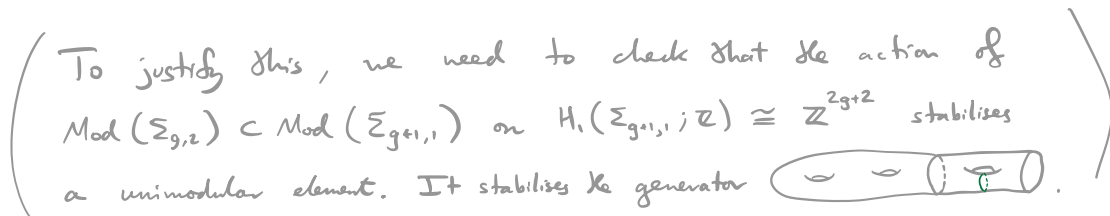 (To justify this, we need to check that the action of
Mod(Σ_{g,2}) ⊂ Mod(Σ_{g+1,1}) on H₁(Σ_{g+1,1}; ℤ) ≅ ℤ^{2g+2} stabilises
a unimodular element. It stabilises the generator .)